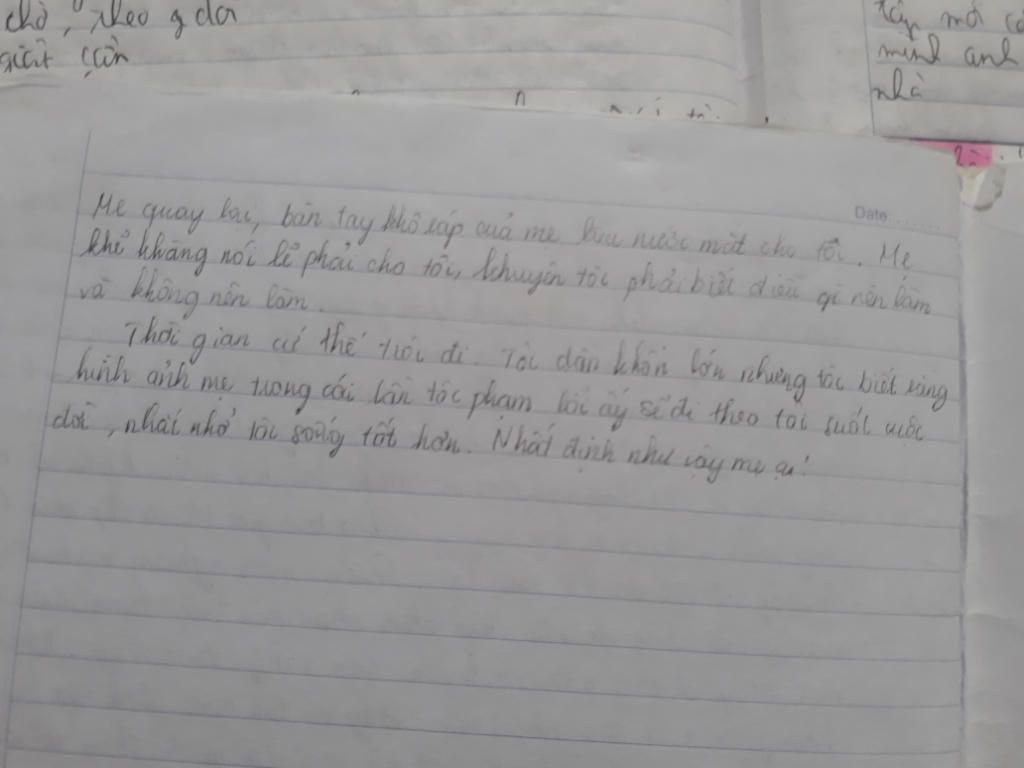 chở, theo g đới
giặt cần
tập mới cá
mình anh
nhà
Date:
Mẹ quay lại, bàn tay khô ráp của mẹ lau nước mắt cho tôi. Mẹ
khẽ khàng nói lẽ phải cho tôi, khuyên tôi phải biết điều gì nên làm
và không nên làm.
Thời gian cứ thế trôi đi. Tôi dần khôn lớn nhưng tôi biết rằng
hình ảnh mẹ trong cái lần tôi phạm lỗi ấy sẽ đi theo tôi suốt cuộc
đời, nhắc nhở tôi sống tốt hơn. Nhất định như vậy mẹ ạ!